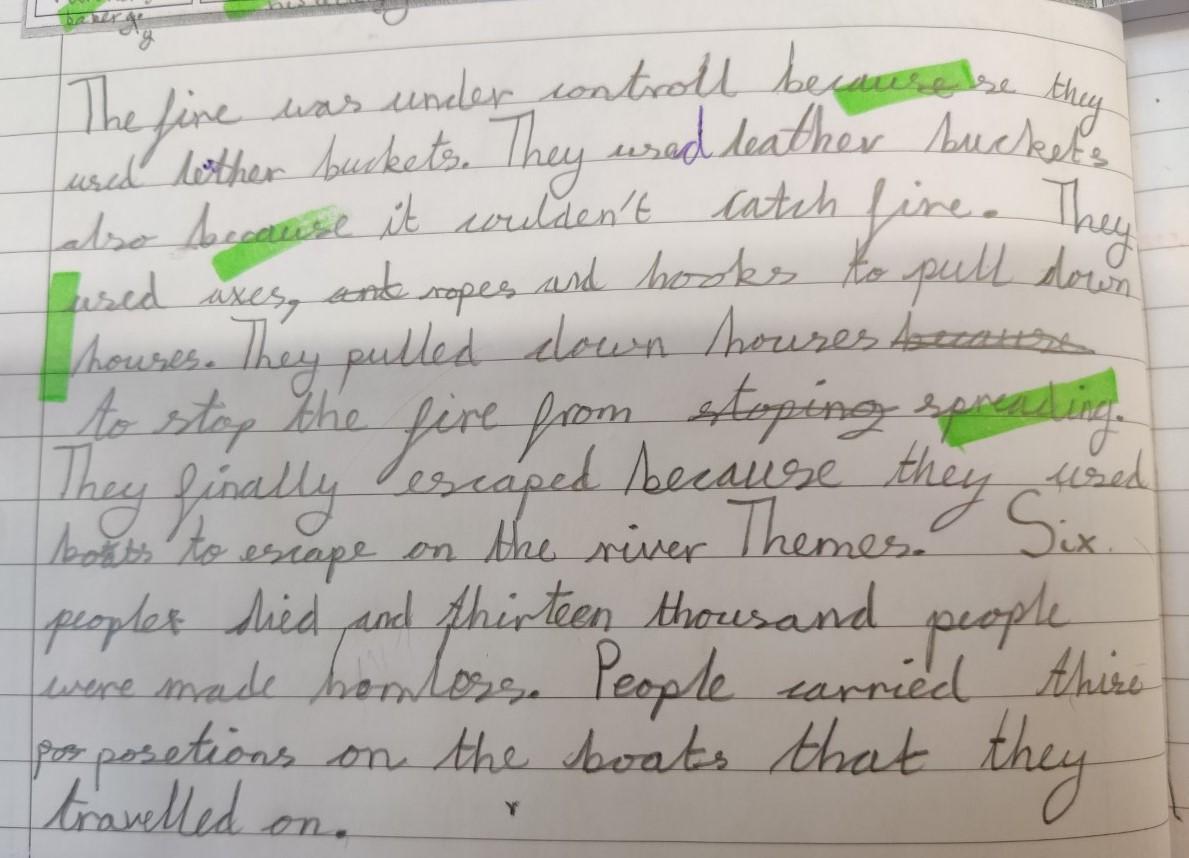 baberg
y
The fire was under controll because se they
used lether buckets. They used leather buckets
also because it coulden't catch fire. They
used axes, ant ropes and hooks to pull down
houses. They pulled down houses because
to stop the fire from stoping spreading.
They finally escaped because they used
boats to escape on the river Themes. Six
people died and thirteen thousand people
were made homless. People carried thire
pos posetions on the boats that they
travelled on.